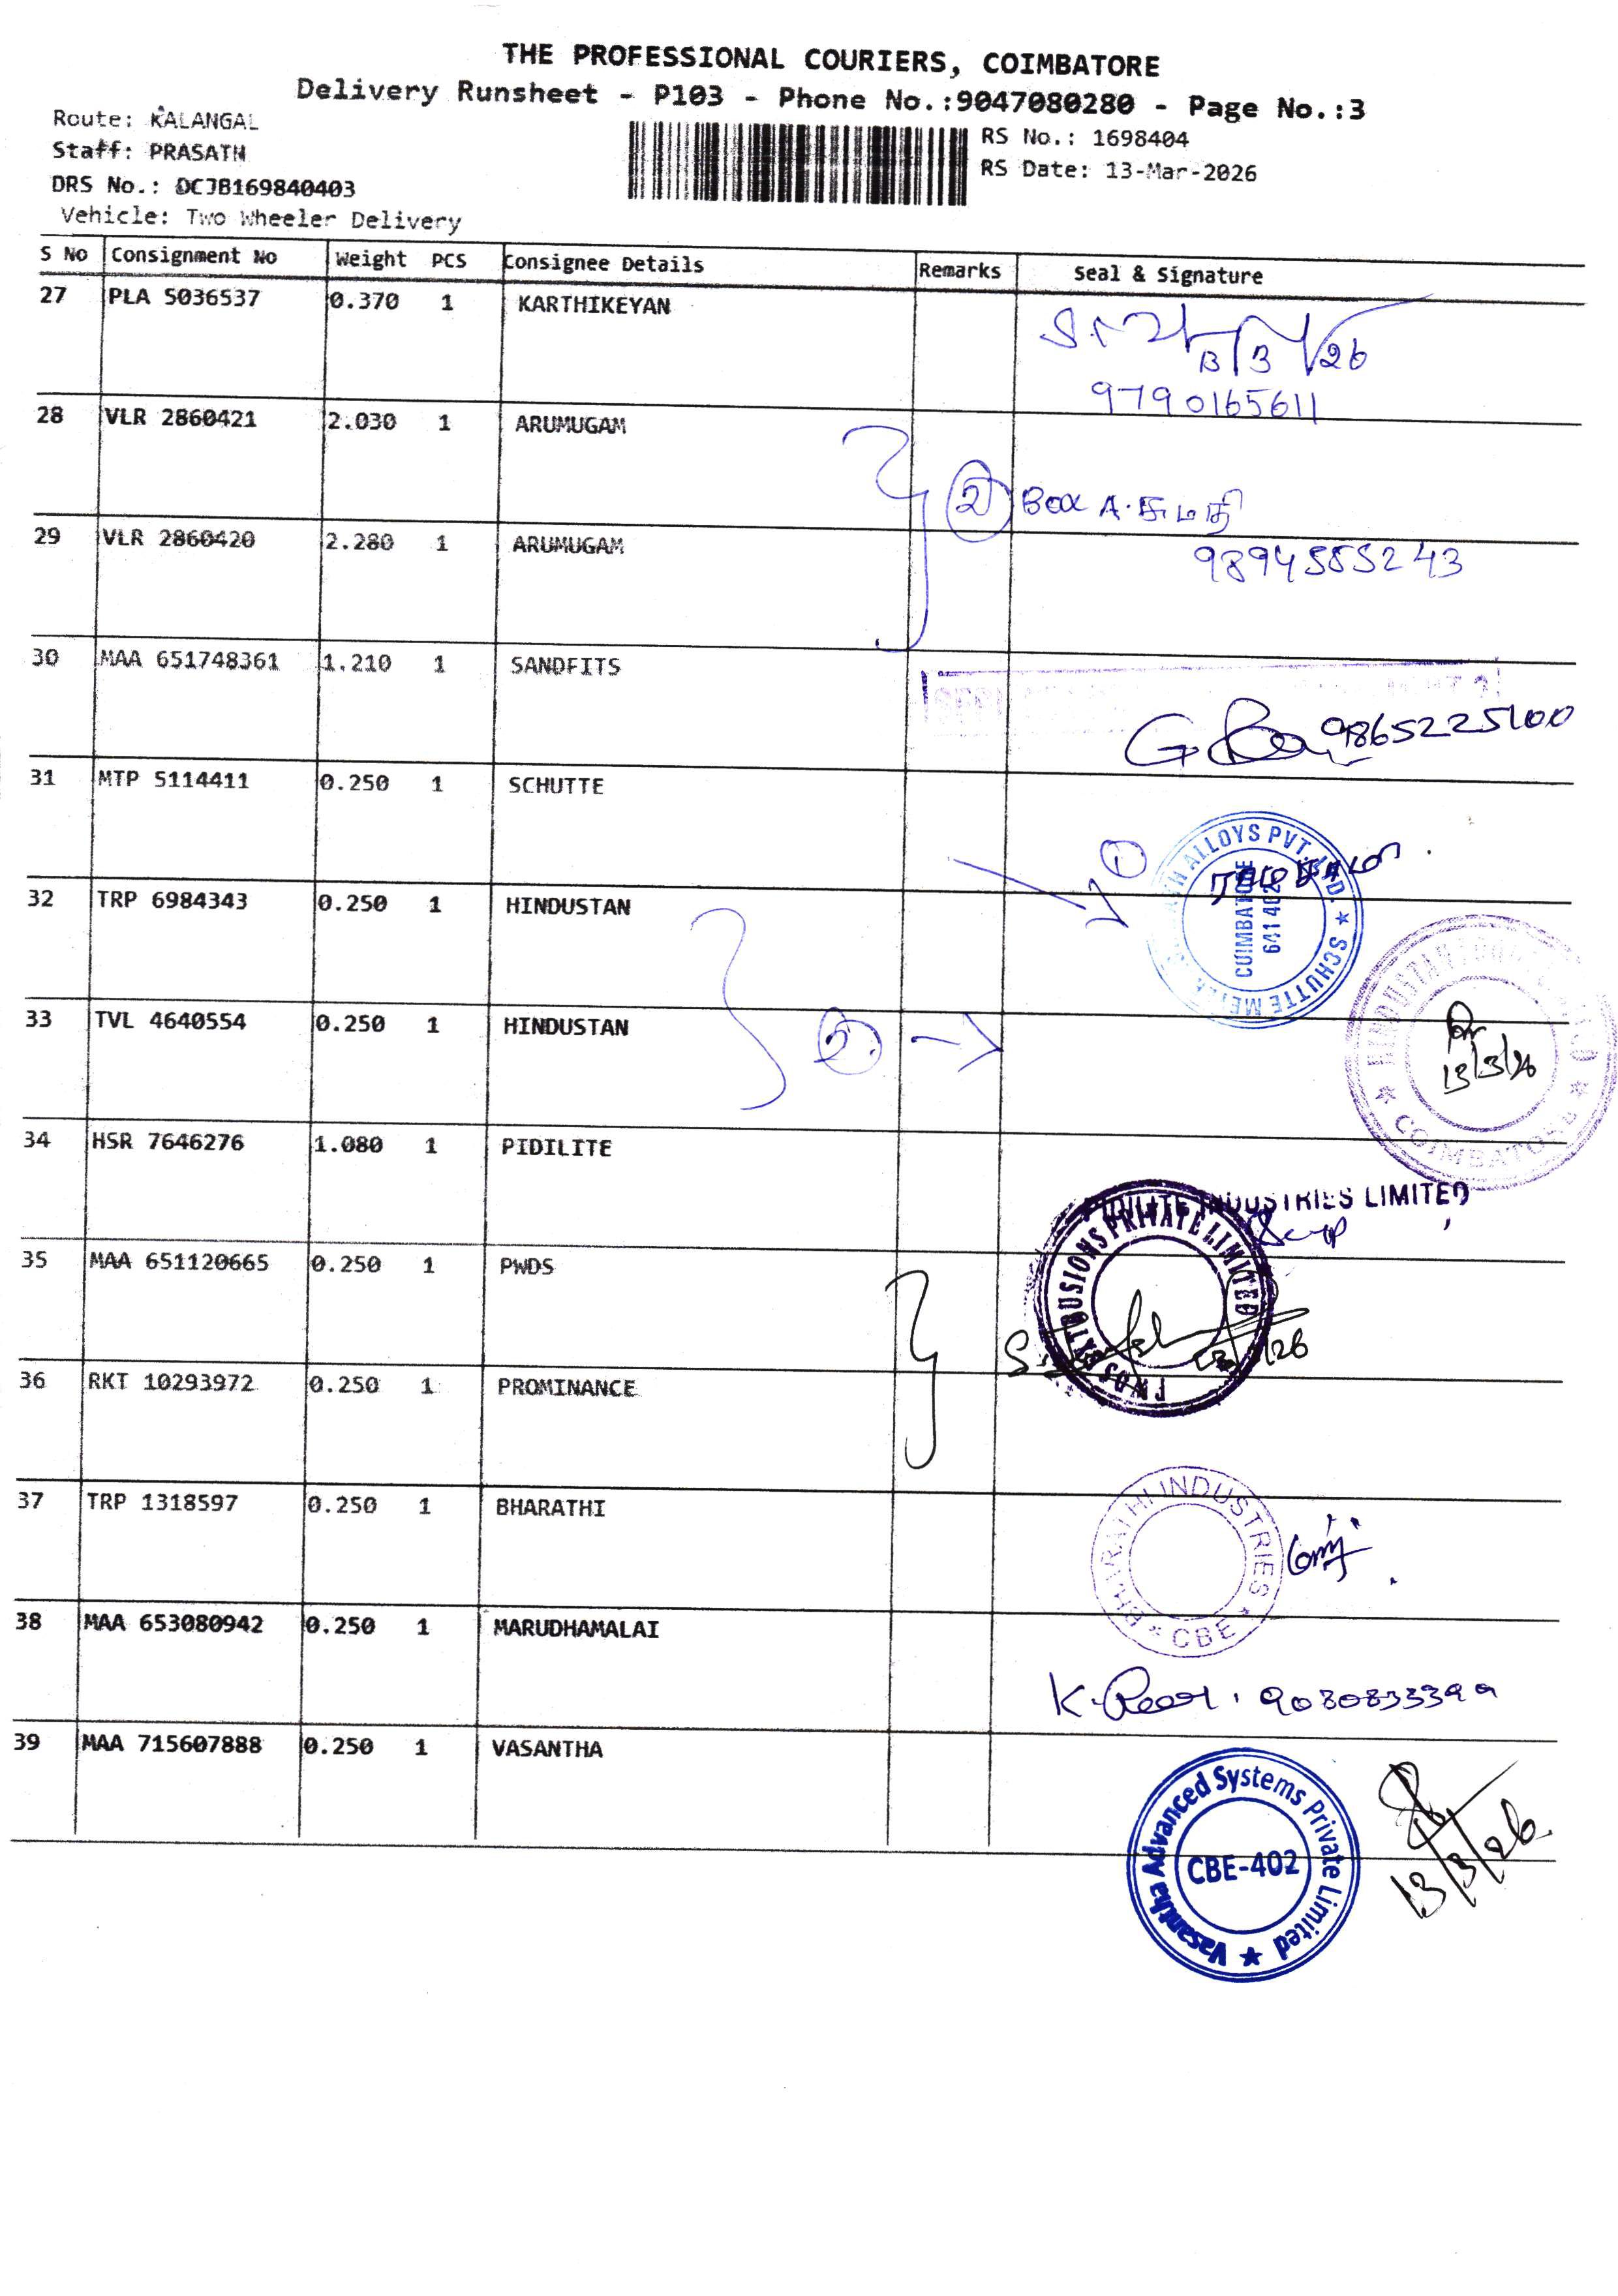 THE PROFESSIONAL COURIERS, COIMBATORE
Delivery Runsheet - P103 - Phone No.:9047080280 - Page No.:3
Route: KALANGAL
Staff: PRASATH
DRS No.: DCJB169840403
Vehicle: Two Wheeler Delivery
RS No.: 1698404
RS Date: 13-Mar-2026
S No Consignment No Weight PCS Consignee Details Remarks Seal & Signature
27 PLA 5036537 0.370 1 KARTHIKEYAN
13/3/26
9790165611
28 VLR 2860421 2.030 1 ARUMUGAM
2 Box A. சுமதி
29 VLR 2860420 2.280 1 ARUMUGAM
9894555243
30 MAA 651748361 1.210 1 SANDFITS
9865225100
31 MTP 5114411 0.250 1 SCHUTTE
1
ALLOYS PVT. LTD. ★ SCHUTTE
COIMBATORE
641 402
32 TRP 6984343 0.250 1 HINDUSTAN
33 TVL 4640554 0.250 1 HINDUSTAN
HINDUSTAN
★ COIMBATORE ★
13/3/26
34 HSR 7646276 1.080 1 PIDILITE
PIDILITE INDUSTRIES LIMITED
35 MAA 651120665 0.250 1 PWDS
PWDS EXTRUSIONS PRIVATE LIMITED
36 RKT 10293972 0.250 1 PROMINANCE
37 TRP 1318597 0.250 1 BHARATHI
BHARATHI INDUSTRIES ★ CBE ★
38 MAA 653080942 0.250 1 MARUDHAMALAI
39 MAA 715607888 0.250 1 VASANTHA
Vasantha Advanced Systems Private Limited ★
CBE-402
13/3/26